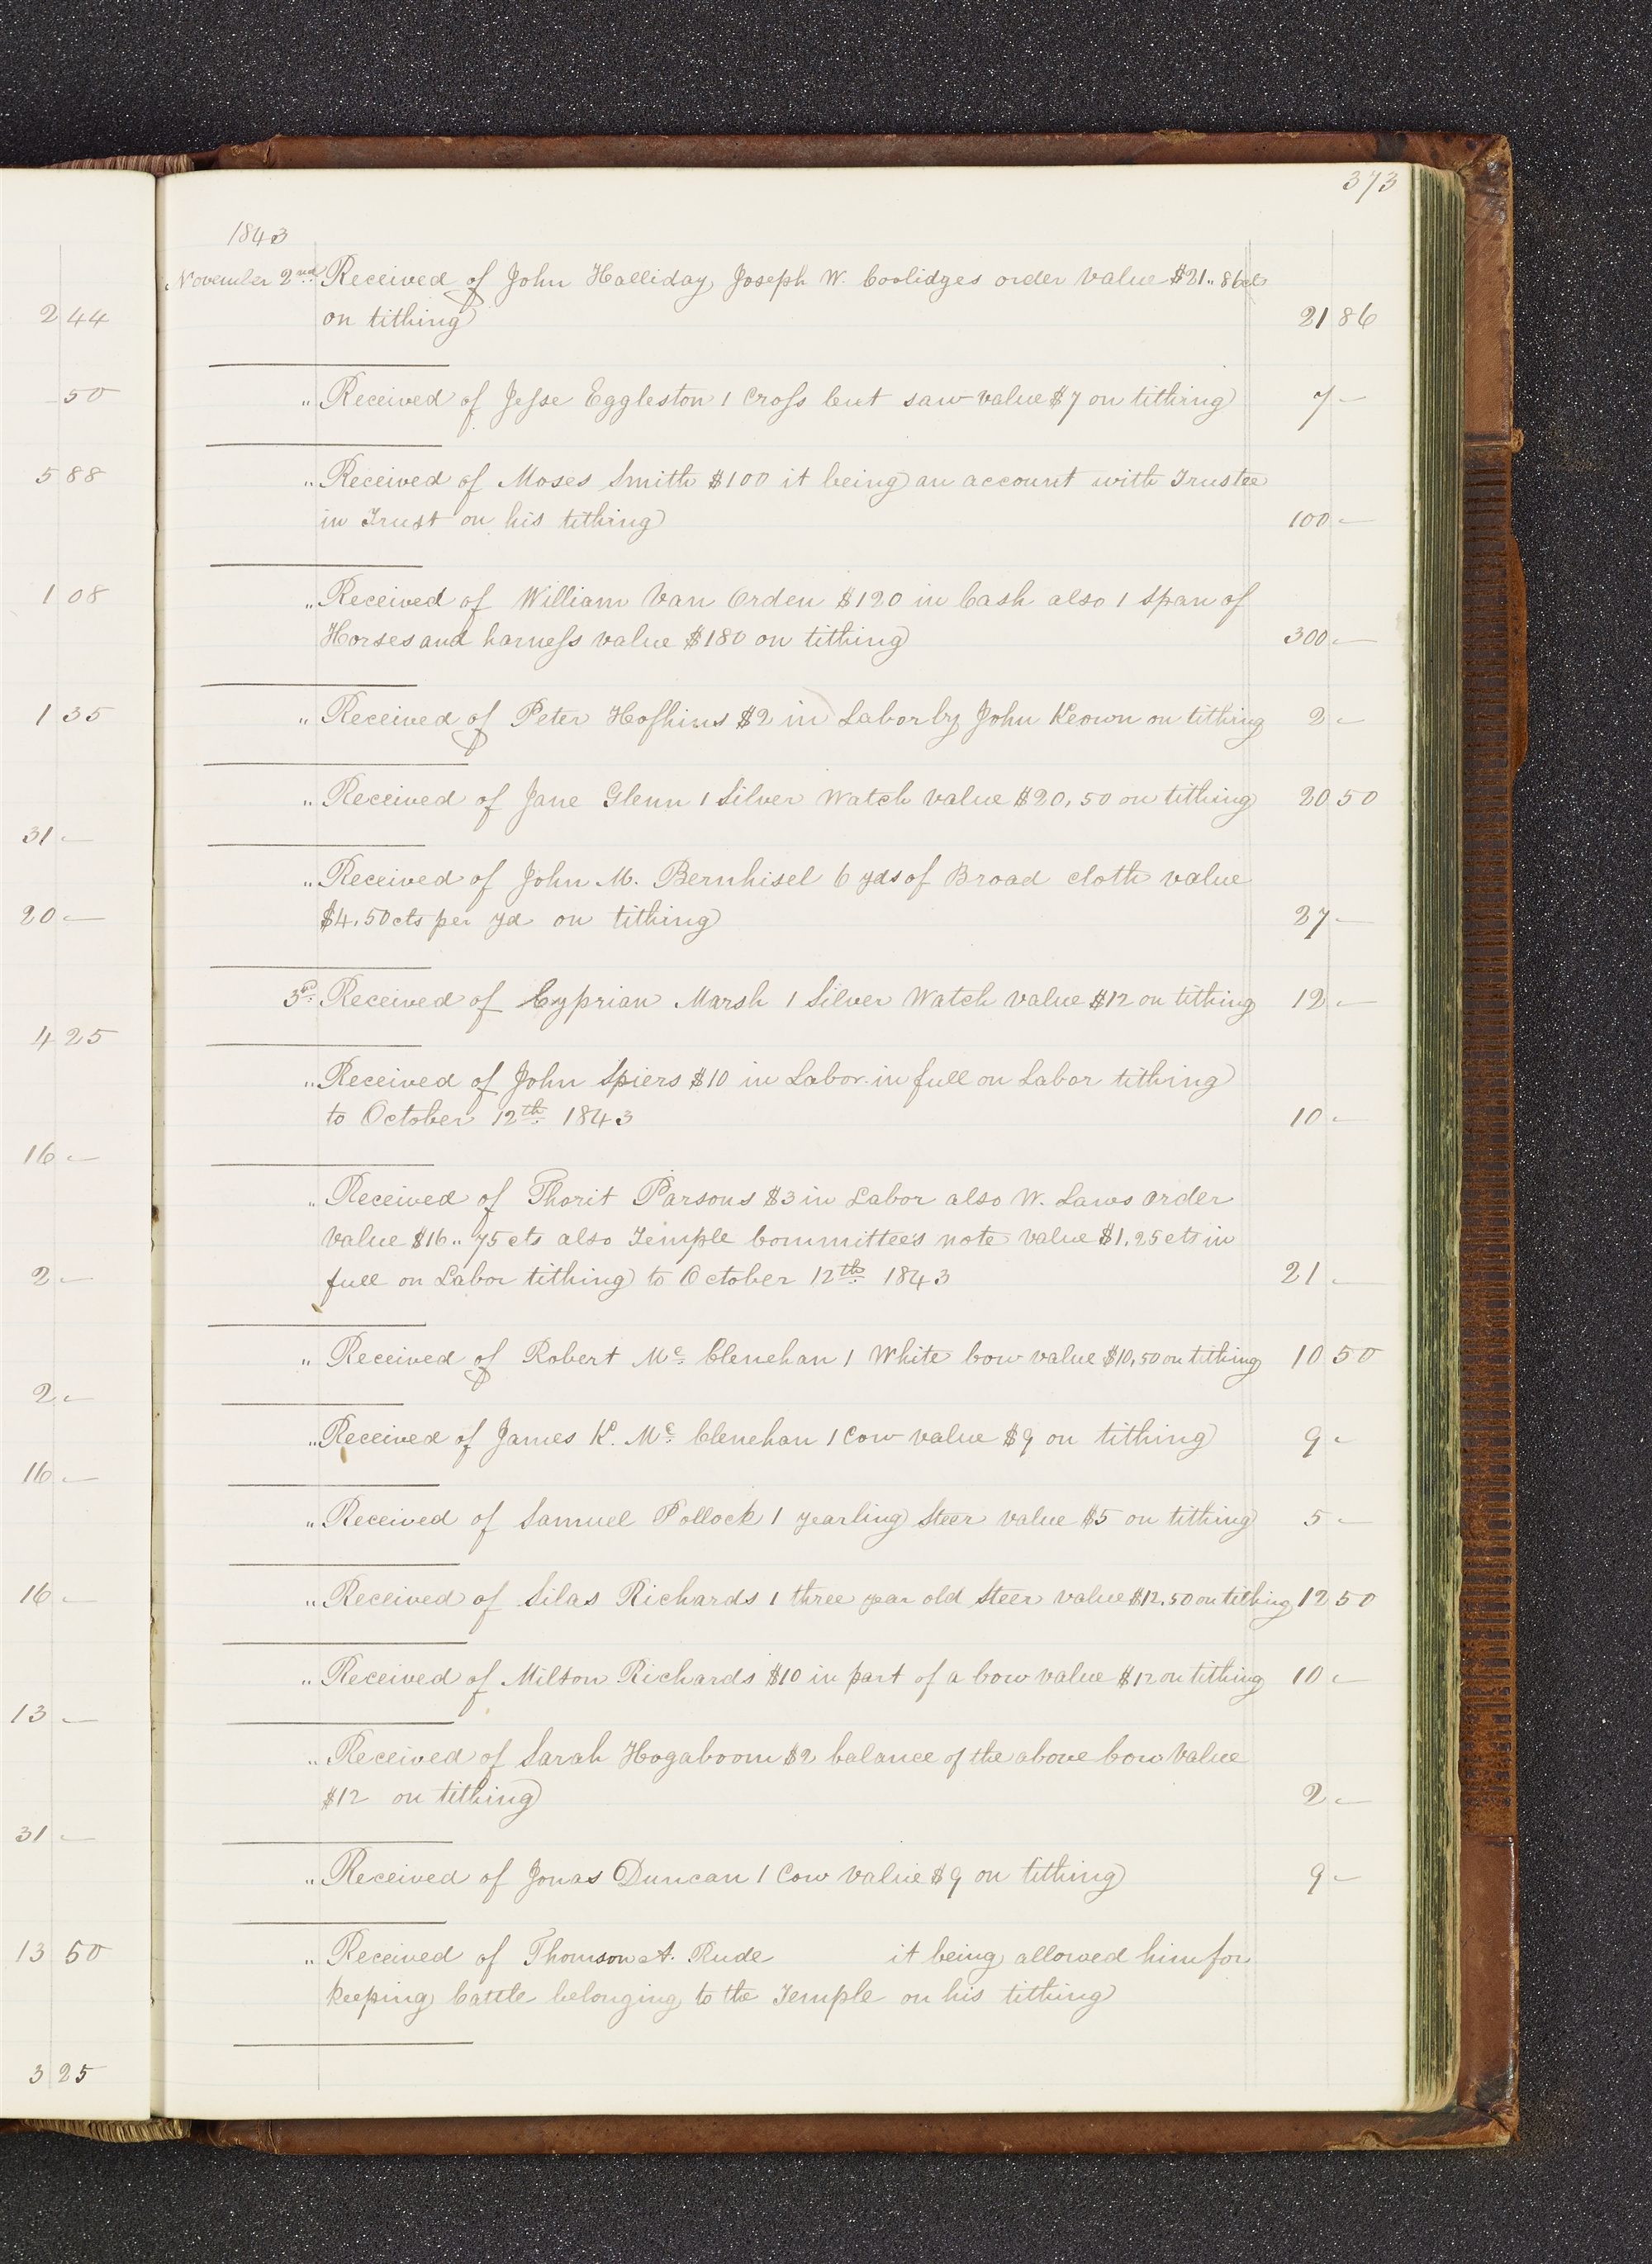 373
1843
November 2nd Received of John Halliday Joseph W. Coolidges order value $21..86cts
on tithing 21 86
" Received of Jesse Eggleston 1 Cross Cut saw value $7 on tithing 7 —
" Received of Moses Smith $100 it being an account with Trustee
in Trust on his tithing 100 —
" Received of William Van Orden $120 in Cash also 1 span of
Horses and harness value $180 on tithing 300 —
" Received of Peter Hoskins $2 in Labor by John Keown on tithing 2 —
" Received of Jane Glenn 1 Silver Watch value $20,50 on tithing 20 50
" Received of John M. Bernhisel 6 yds of Broad cloth value
$4.50cts per yd on tithing 27 —
3d. Received of Cyprian Marsh 1 Silver Watch value $12 on tithing 12 —
" Received of John Spiers $10 in Labor in full on Labor tithing
to October 12th 1843 10 —
" Received of Thorit Parsons $3 in Labor also W. Laws order
value $16..75cts also Temple Committees note value $1.25cts in
full on Labor tithing to October 12th 1843 21 —
" Received of Robert Mc Clenehan 1 White Cow value $10,50 on tithing 10 50
" Received of James K. Mc Clenehan 1 Cow value $9 on tithing 9 —
" Received of Samuel Pollock 1 yearling Steer value $5 on tithing 5 —
" Received of Silas Richards 1 three year old Steer value $12.50 on tithing 12 50
" Received of Milton Richards $10 in part of a Cow value $12 on tithing 10 —
" Received of Sarah Hogaboom $2 balance of the above Cow value
$12 on tithing 2 —
" Received of Jonas Duncan 1 Cow value $9 on tithing 9 —
" Received of Thomson A. Rude it being allowed him for
keeping Cattle belonging to the Temple on his tithing
2 44
50
5 88
1 08
1 35
31 —
20 —
4 25
16 —
2 —
2 —
16 —
16 —
13 —
31 —
13 50
3 25